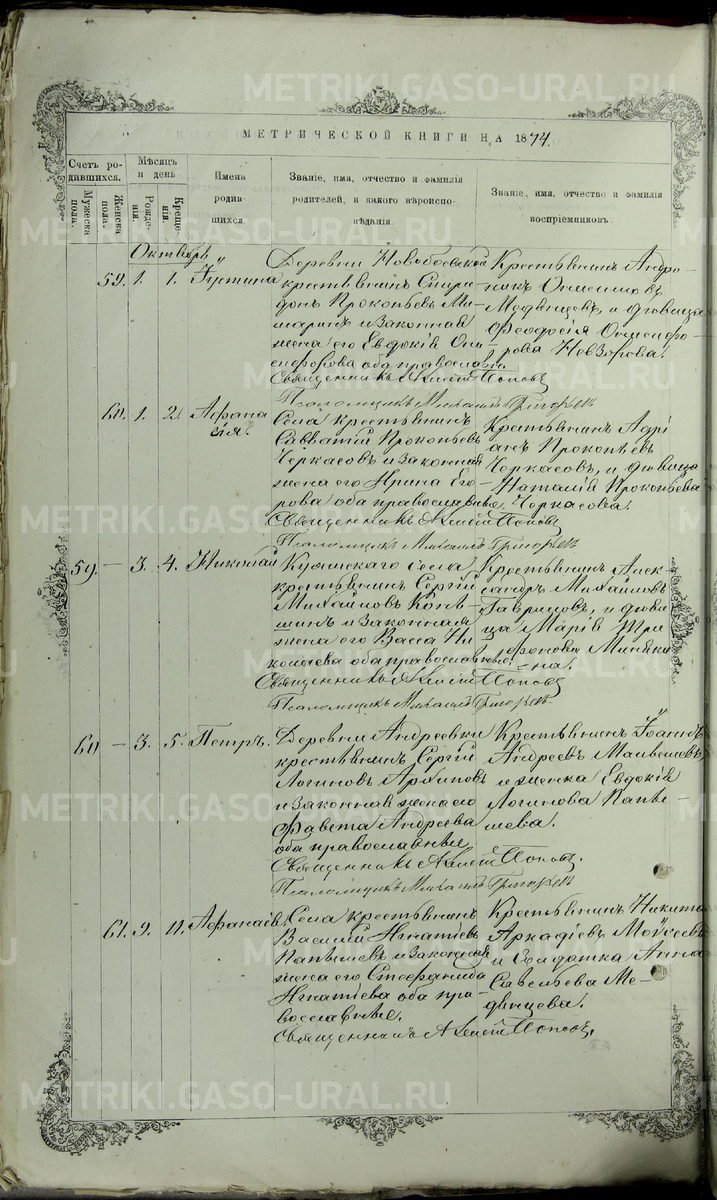 METRIKI.GASO-URAL.RU
МЕТРИЧЕСКОЙ КНИГИ НА 1874.
Счетъ родившихся.
Мужеска пола.
Женска пола.
Мѣсяцъ и день
Рожденія.
Крещенія.
Имена родившихся.
Званіе, имя, отчество и фамилія родителей, и какого вѣроисповѣданія.
Званіе, имя, отчество и фамилія воспріемниковъ.
Октябрь
59. 1. 1. Іустина
Деревни
крестьянинъ Спири-
донъ Прокопьевъ
и законная
жена его Евдокія Они-
сифорова оба православн
Священникъ Алексій Поповъ
Псаломщикъ Михаилъ Григорьев
Крестьянинъ Андро-
никъ
Медвѣцевъ, и дѣвица
Феодосія Онисифо-
рова Невзорова.
60. 1. 2. Афана
сія.
Села крестьянинъ
Савватій Прокопьевъ
Черкасовъ и законная
жена его Ирина Его-
рова оба православные
Священникъ Алексій Поповъ
Псаломщикъ Михаилъ Григорьев
Крестьянинъ Адрі
анъ Прокопьевъ
Черкасовъ, и дѣвица
Наталія Прокопьева
Черкасова.
59. — 3. 4. Николай
села
крестьянинъ Сергій
Михайловъ
и законная
жена его Васса Ни
колаева оба православные.
Священникъ Алексій Поповъ
Псаломщикъ Михаилъ Григорьев
Крестьянинъ Алек-
сандръ Михайловъ
Гавриловъ, и дѣви
ца Марія Три
фонова
на.
60 — 3. 5. Петръ.
Деревни Андреевки
крестьянинъ Сергій
Логиновъ Архиповъ
и законная жена его
Фавста Андреева
оба православные
Священникъ Алексій Поповъ.
Псаломщикъ Михаилъ Григорьев
Крестьянинъ Іоаннъ
Андреевъ
и женка Евдокія
Логинова Папы-
шева.
61. 9. 11. Афанасія
Села крестьянинъ
Василій Игнатіевъ
Папышевъ и законная
жена его Стефанида
Игнатіева оба пра-
вославные.
Священникъ Алексій Поповъ.
Крестьянинъ Никита
Аркадіевъ Мойсеевъ
и солдатка Анна
Савельева Ме-
двѣцева.